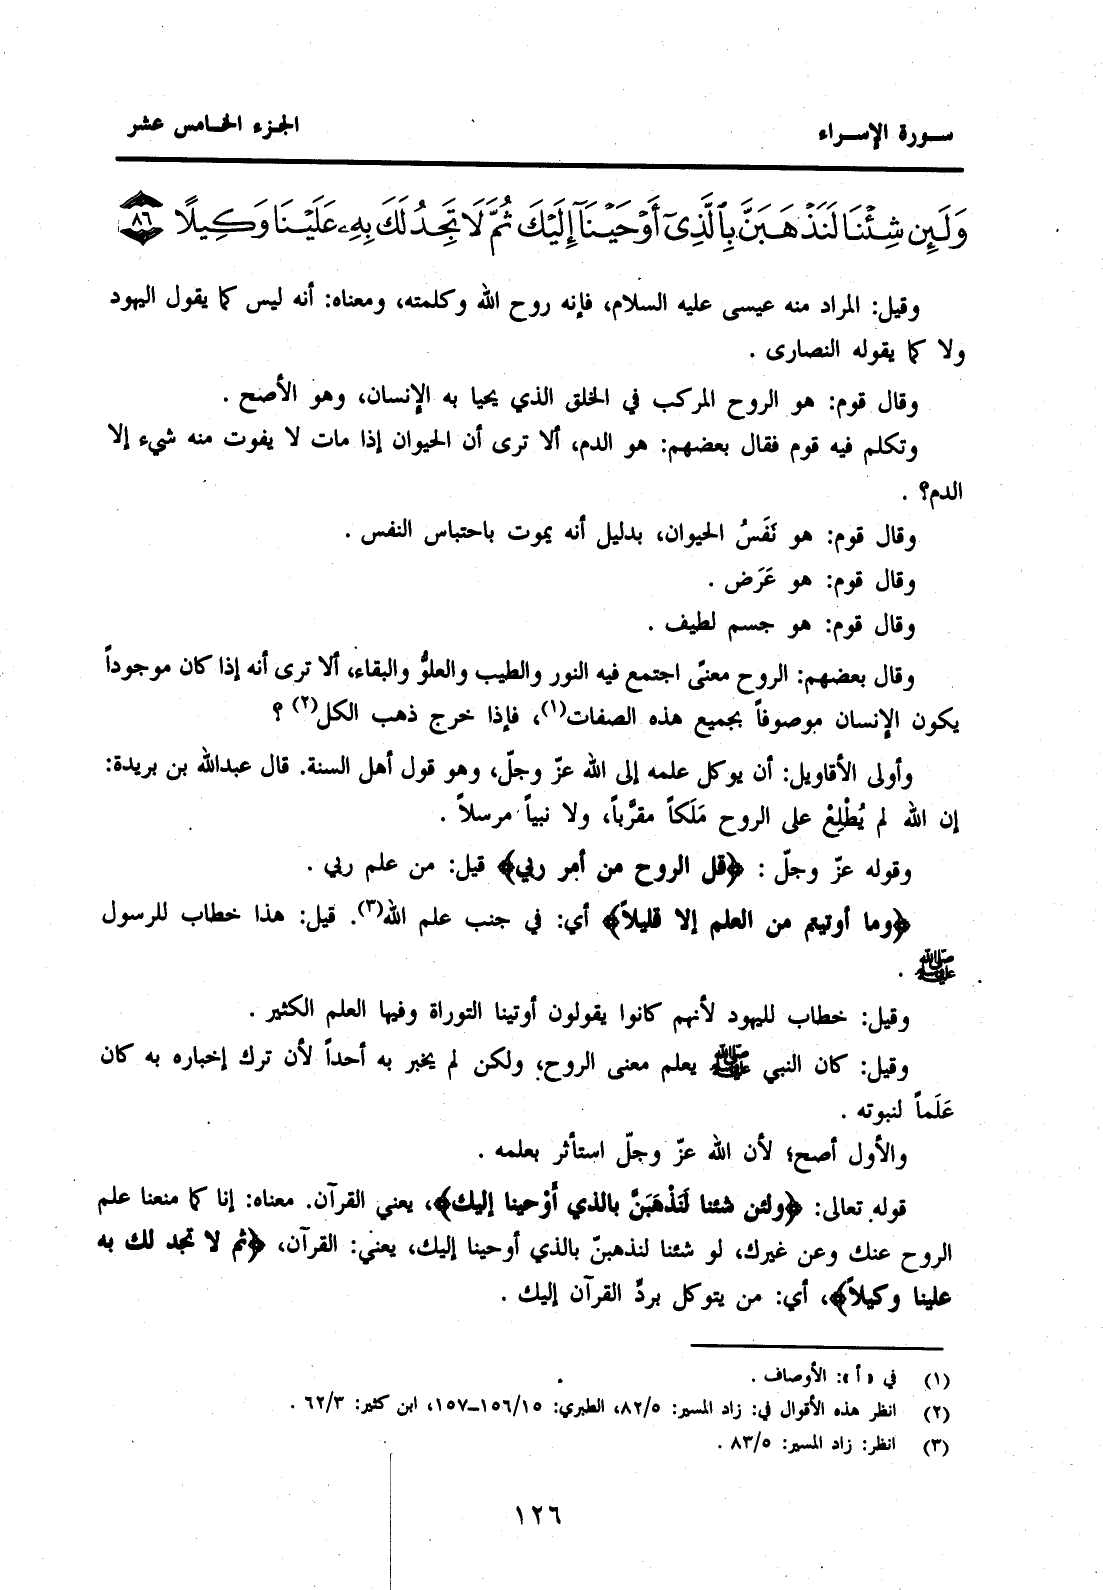 سورة الإسراء
الجزء الخامس عشر
وَلَئِن شِئْنَا لَنَذْهَبَنَّ بِٱلَّذِىٓ أَوْحَيْنَآ إِلَيْكَ ثُمَّ لَا تَجِدُ لَكَ بِهِۦ عَلَيْنَا وَكِيلًا ٨٦
وقيل: المراد منه عيسى عليه السلام، فإنه روح الله وكلمته، ومعناه: أنه ليس كما يقول اليهود
ولا كما يقوله النصارى .
وقال قوم: هو الروح المركب في الخلق الذي يحيا به الإنسان، وهو الأصح .
وتكلم فيه قوم فقال بعضهم: هو الدم، ألا ترى أن الحيوان إذا مات لا يفوت منه شيء إلا
الدم؟ .
وقال قوم: هو نَفَسُ الحيوان، بدليل أنه يموت باحتباس النفس .
وقال قوم: هو عَرَض .
وقال قوم: هو جسم لطيف .
وقال بعضهم: الروح معنىً اجتمع فيه النور والطيب والعلوُّ والبقاء، ألا ترى أنه إذا كان موجوداً
يكون الإنسان موصوفاً بجميع هذه الصفات(١)، فإذا خرج ذهب الكل(٢) ؟
وأولى الأقاويل: أن يوكل علمه إلى الله عزّ وجلّ، وهو قول أهل السنة. قال عبدالله بن بريدة:
إن الله لم يُطْلِعْ على الروح مَلَكاً مقرَّباً، ولا نبياً مرسلاً .
وقوله عزّ وجلّ : ﴿قل الروح من أمر ربي﴾ قيل: من علم ربي .
﴿وما أوتيتم من العلم إلا قليلاً﴾ أي: في جنب علم الله(٣). قيل: هذا خطاب للرسول
ﷺ .
وقيل: خطاب لليهود لأنهم كانوا يقولون أوتينا التوراة وفيها العلم الكثير .
وقيل: كان النبي ﷺ يعلم معنى الروح، ولكن لم يخبر به أحداً لأن ترك إخباره به كان
عَلَماً لنبوته .
والأول أصح؛ لأن الله عزّ وجلّ استأثر بعلمه .
قوله تعالى: ﴿ولئن شئنا لَنَذْهَبَنَّ بالذي أَوْحينا إليك﴾، يعني القرآن. معناه: إنا كما منعنا علم
الروح عنك وعن غيرك، لو شئنا لنذهبنّ بالذي أوحينا إليك، يعني: القرآن، ﴿ثم لا تجد لك به
علينا وكيلاً﴾، أي: من يتوكل بردِّ القرآن إليك .
(١) في « أ »: الأوصاف .
(٢) انظر هذه الأقوال في: زاد المسير: ٨٢/٥، الطبري: ١٥٦/١٥_١٥٧، ابن كثير: ٦٢/٣ .
(٣) انظر: زاد المسير: ٨٣/٥ .
١٢٦